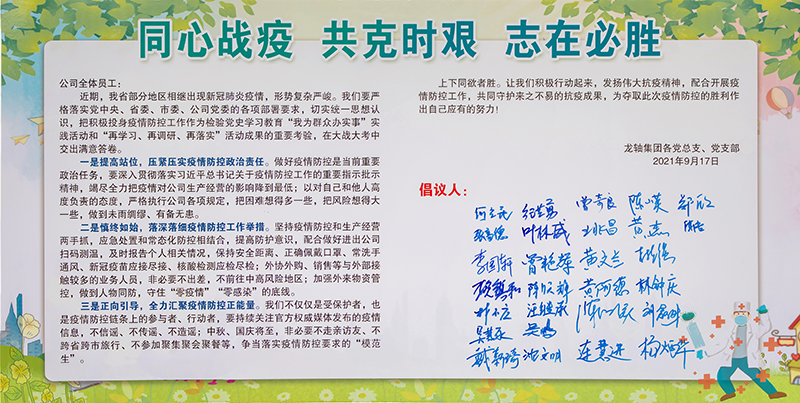 同心战疫 共克时艰 志在必胜
公司全体员工：
近期，我省部分地区相继出现新冠肺炎疫情，形势复杂严峻。我们要严
格落实党中央、省委、市委、公司党委的各项部署要求，切实统一思想认
识，把积极投身疫情防控工作作为检验党史学习教育“我为群众办实事”实
践活动和“再学习、再调研、再落实”活动成果的重要考验，在大战大考中
交出满意答卷。
一是提高站位，压紧压实疫情防控政治责任。做好疫情防控是当前重要
政治任务，要深入贯彻落实习近平总书记关于疫情防控工作的重要指示批示
精神，竭尽全力把疫情对公司生产经营的影响降到最低；以对自己和他人高
度负责的态度，严格执行公司各项规定，把困难想得多一些，把风险想得大
一些，做到未雨绸缪、有备无患。
二是慎终如始，落深落细疫情防控工作举措。坚持疫情防控和生产经营
两手抓，应急处置和常态化防控相结合，提高防护意识，配合做好进出公司
扫码测温，及时报告个人相关情况，保持安全距离、正确佩戴口罩、常洗手
通风、新冠疫苗应接尽接、核酸检测应检尽检；外协外购、销售等与外部接
触较多的业务人员，非必要不出差，不前往中高风险地区；加强外来物资管
控，做到人物同防，守住“零疫情”“零感染”的底线。
三是正向引导，全力汇聚疫情防控正能量。我们不仅仅是受保护者，也
是疫情防控链条上的参与者、行动者，要持续关注官方权威媒体发布的疫情
信息，不信谣、不传谣、不造谣；中秋、国庆将至，非必要不走亲访友、不
跨省跨市旅行、不参加聚集聚会聚餐等，争当落实疫情防控要求的“模范
生”。
上下同欲者胜。让我们积极行动起来，发扬伟大抗疫精神，配合开展疫
情防控工作，共同守护来之不易的抗疫成果，为夺取此次疫情防控的胜利作
出自己应有的努力！
龙轴集团各党总支、党支部
2021年9月17日
倡议人：
曾奇良 陈嵘 郑欣
叶林盛 姚昌 黄杰
李国轩 曾艳萍 黄文兰
黄阿惠 林钟庆
汪继承
戴新琦 沈文明 连慧还